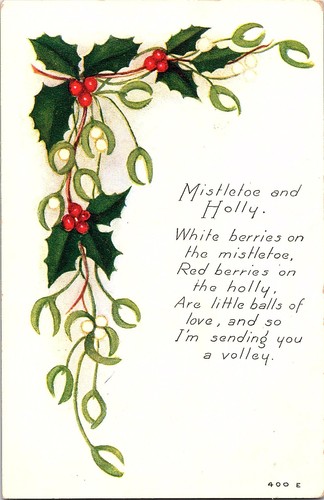 Mistletoe and
Holly.
White berries on
the mistletoe,
Red berries on
the holly,
Are little balls of
love, and so
I'm sending you
a volley.
400 E